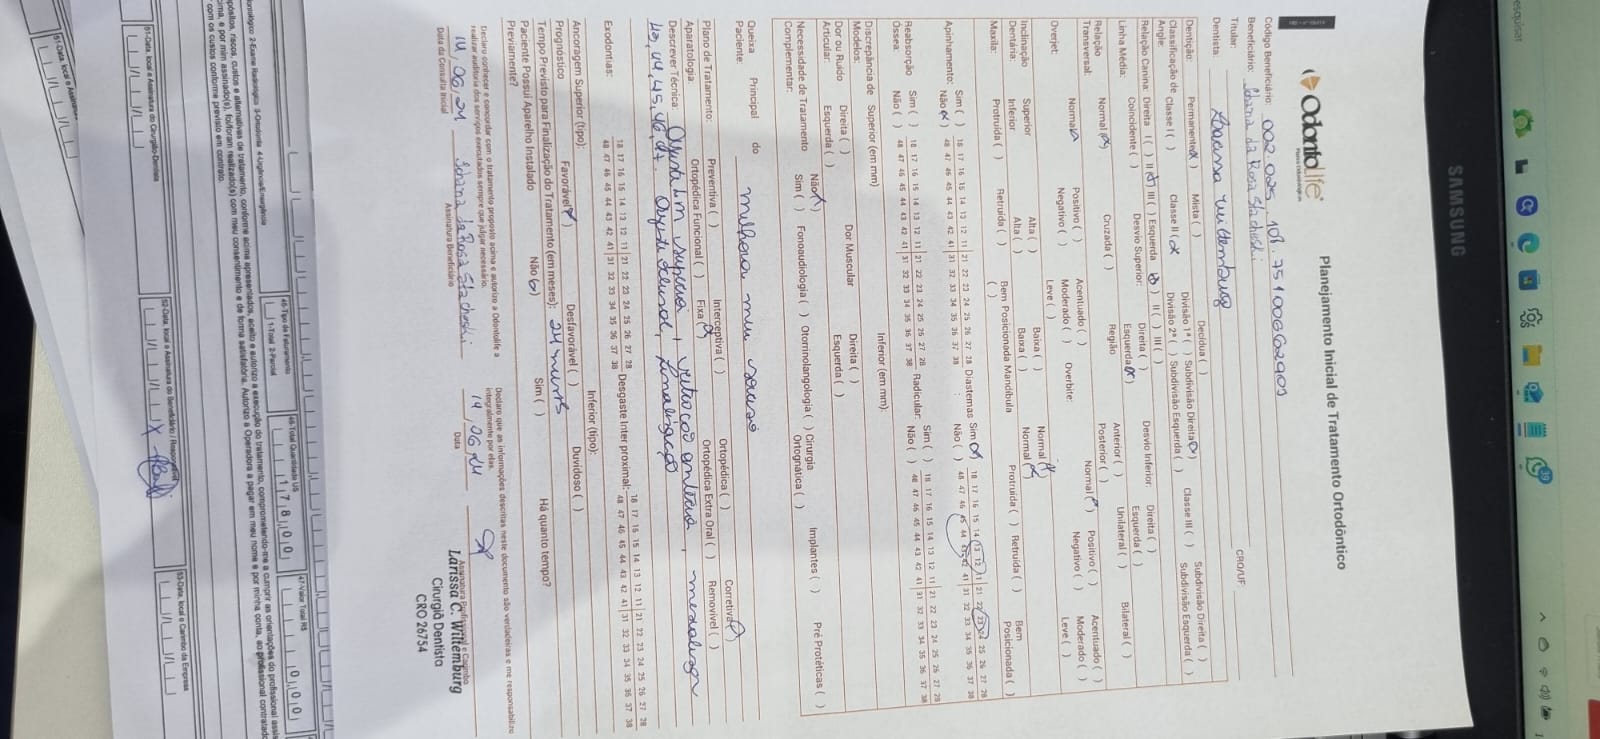 SAMSUNG
esquisar
39
OdontoLife
Planejamento Inicial de Tratamento Ortodôntico
Código Beneficiário: 002.025.108.751006629
Beneficiário: da Rosa
Titular: CRO/UF
Dentista: Larissa
Dentição: Permanente(x) Mista ( ) Decídua ( )
Classificação de Angle: Classe I ( ) Classe II (x Divisão 1ª ( ) Subdivisão Direita(x) Classe III ( ) Subdivisão Direita ( )
Divisão 2ª ( ) Subdivisão Esquerda ( ) Subdivisão Esquerda ( )
Relação Canina: Direita I ( ) II (x) III ( ) Esquerda I (x) II ( ) III ( )
Linha Média: Coincidente ( ) Desvio Superior: Direita ( ) Esquerda(x) Desvio Inferior Direita ( ) Esquerda ( )
Relação Transversal: Normal (x) Cruzada ( ) Região Anterior ( ) Posterior ( ) Unilateral ( ) Bilateral ( )
Overjet: Normal Positivo ( ) Negativo ( ) Acentuado ( ) Moderado ( ) Leve ( ) Overbite: Normal (x) Positivo ( ) Negativo ( ) Acentuado ( ) Moderado ( ) Leve ( )
Inclinação Dentária: Superior Alta ( ) Baixa ( ) Normal (x)
Inferior Alta ( ) Baixa ( ) Normal (x)
Maxila: Protruída ( ) Retruída ( ) Bem Posicionada ( ) Mandíbula Protruída ( ) Retruída ( ) Bem Posicionada ( )
Apinhamento: Sim ( ) 18 17 16 15 14 13 12 11|21 22 23 24 25 26 27 28 Diastemas Sim (x) 18 17 16 15 14 13 12 11|21 22 23 24 25 26 27 28
Não (x) 48 47 46 45 44 43 42 41|31 32 33 34 35 36 37 38 Não ( ) 48 47 46 45 44 43 42 41|31 32 33 34 35 36 37 38
Reabsorção Óssea: Sim ( ) 18 17 16 15 14 13 12 11|21 22 23 24 25 26 27 28 Radicular: Sim ( ) 18 17 16 15 14 13 12 11|21 22 23 24 25 26 27 28
Não ( ) 48 47 46 45 44 43 42 41|31 32 33 34 35 36 37 38 Não ( ) 48 47 46 45 44 43 42 41|31 32 33 34 35 36 37 38
Discrepância de Modelos: Superior (em mm) Inferior (em mm):
Dor ou Ruído Articular: Direita ( ) Esquerda ( ) Dor Muscular Direita ( ) Esquerda ( )
Necessidade de Tratamento Complementar: Não(x) Sim ( ) Fonoaudiologia ( ) Otorrinolangologia ( ) Cirurgia Ortognática ( ) Implantes ( ) Pré Protéticas ( )
Queixa Principal do Paciente: melhorar meu sorriso
Plano de Tratamento: Preventiva ( ) Interceptiva ( ) Corretiva(x)
Aparatologia: Ortopédica Funcional ( ) Fixa (x) Ortopédica ( ) Ortopédica Extra Oral ( ) Removível ( )
Descrever Técnica:
Exodontias: 18 17 16 15 14 13 12 11|21 22 23 24 25 26 27 28 Desgaste Inter proximal: 18 17 16 15 14 13 12 11|21 22 23 24 25 26 27 28
48 47 46 45 44 43 42 41|31 32 33 34 35 36 37 38 48 47 46 45 44 43 42 41|31 32 33 34 35 36 37 38
Ancoragem Superior (tipo): Inferior (tipo):
Prognóstico Favorável(x) Desfavorável ( ) Duvidoso ( )
Tempo Previsto para Finalização do Tratamento (em meses): 24 meses
Paciente Possui Aparelho Instalado Previamente? Não (x) Sim ( ) Há quanto tempo?
Declaro conhecer e concordar com o tratamento proposto acima e autorizo a Odontolife a
realizar auditoria dos serviços executados sempre que julgar necessário.
Declaro que as informações descritas neste documento são verdadeiras e me responsabilizo
integralmente por elas.
14,06,24 da Rosa 14,06,24
Data da Consulta Inicial Assinatura Beneficiário Data Assinatura Profissional e Carimbo
Larissa C. Willemburg
Cirurgiã Dentista
CRO 26754
46-Total Quantidade US
178,00
47-Valor Total R$
0,00
45-Tipo de Faturamento
1-Total 2-Parcial
2-Exame Radiológico 3-Ortodontia 4-Urgência/Emergência
51-Data, local e Assinatura do Cirurgião-Dentista
52-Data, local e Assinatura do Beneficiário / Responsável
53-Data, local e Carimbo da Empresa
51-Data, local e Assinatura